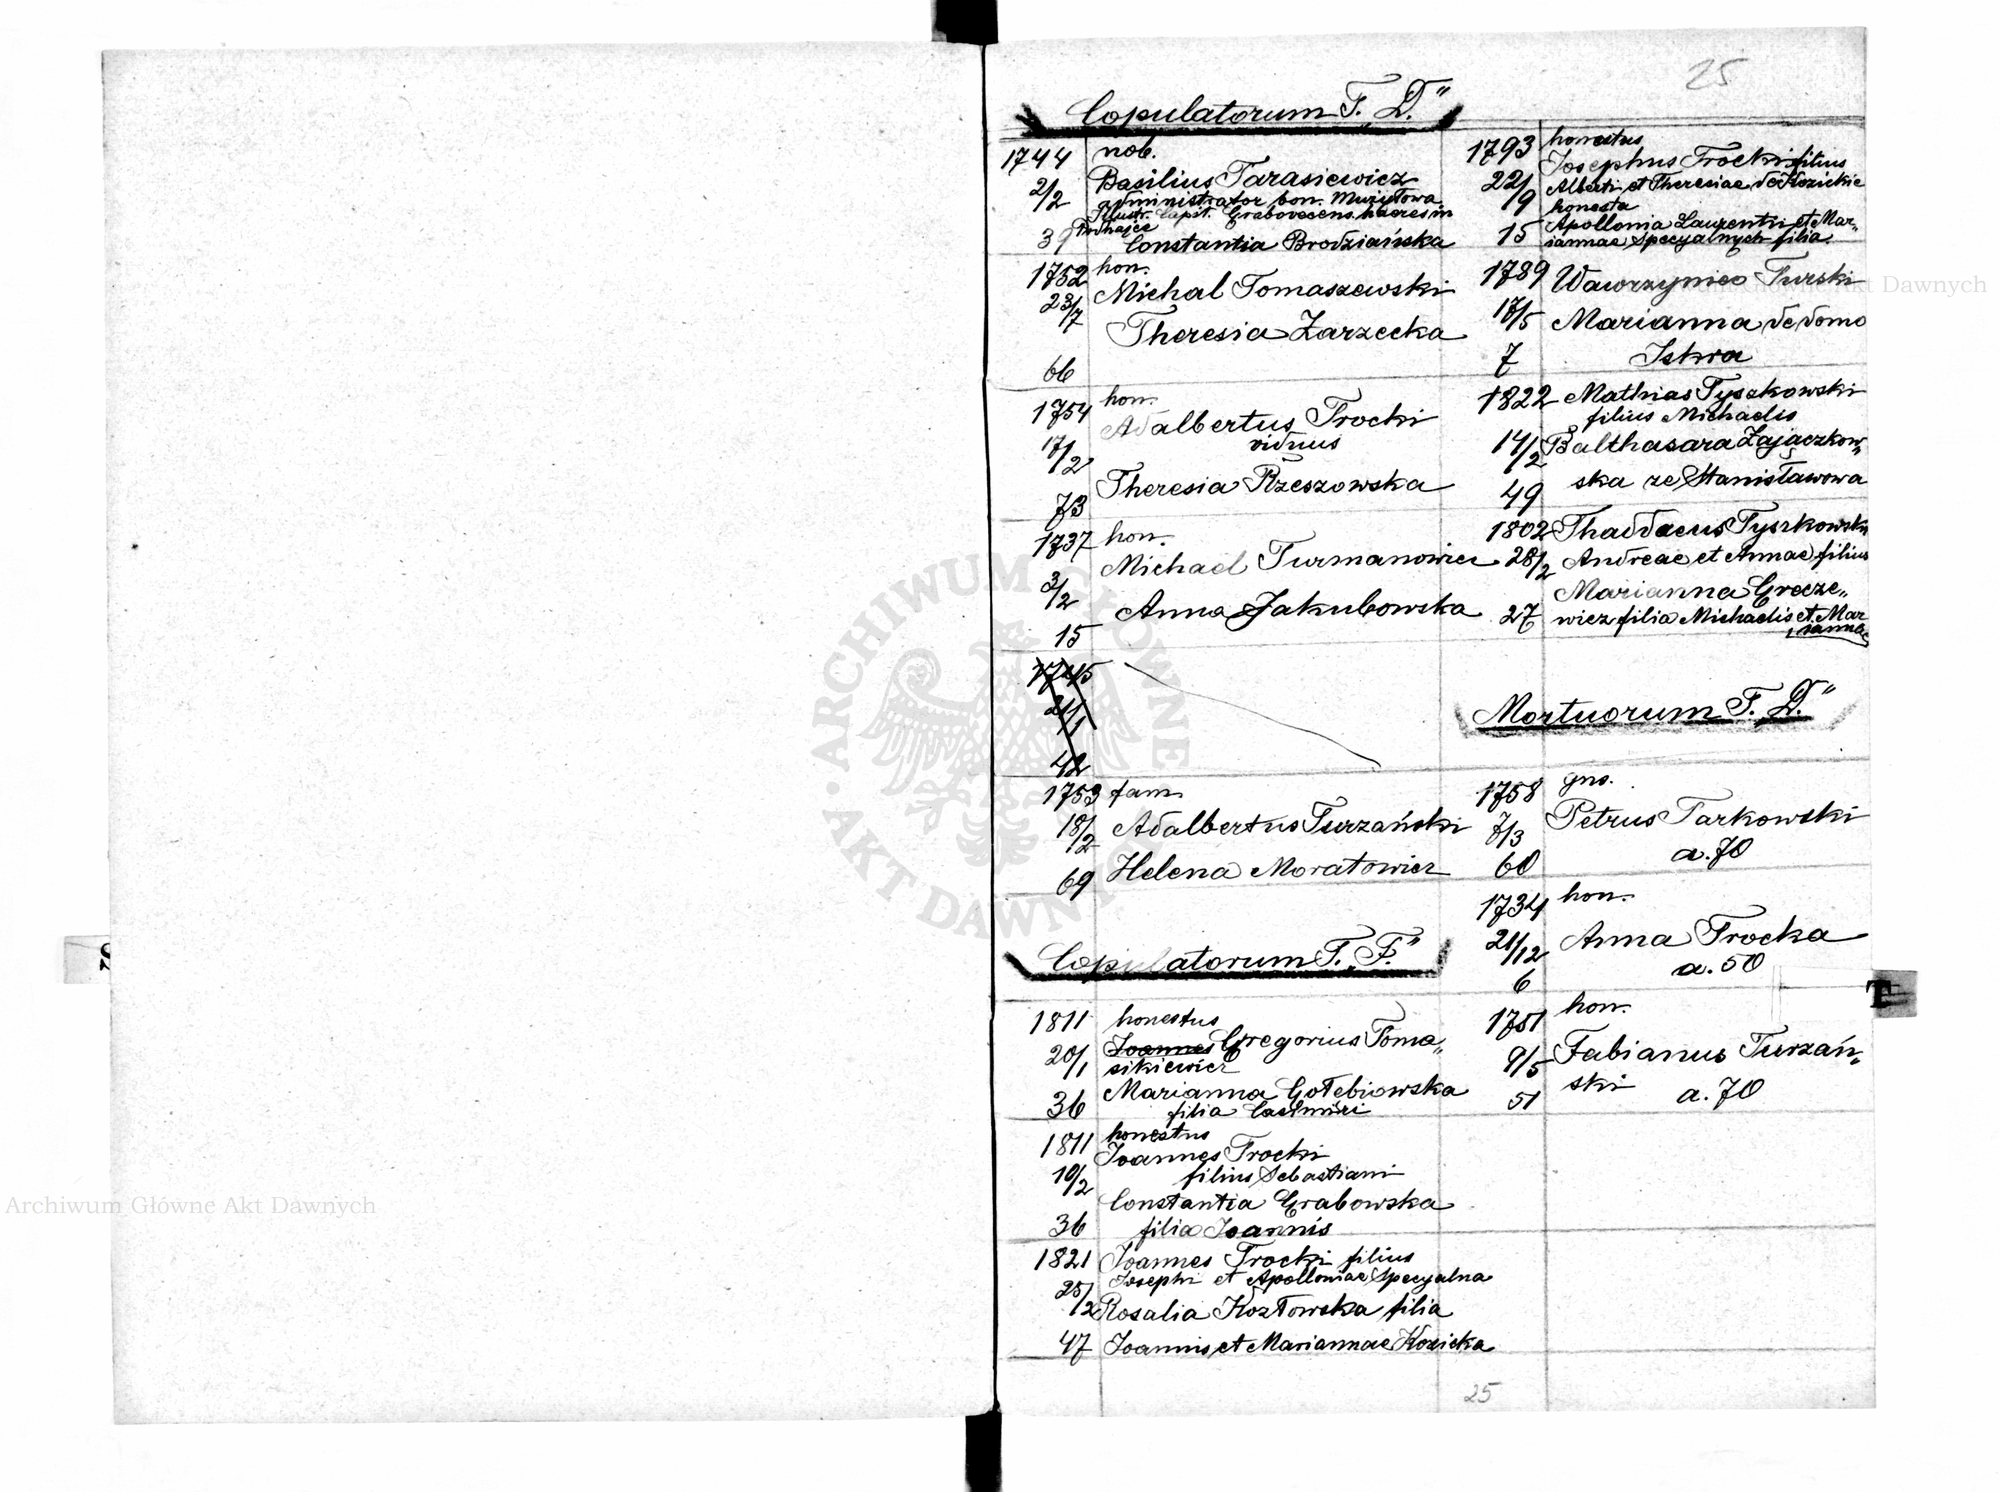 25
Copulatorum T. „D."
1744 nob.
2/2 Basilius Tarasiewicz
administrator bon. Mużyłowa
Illustr. Capit. Grabovecens. haeres in
39
Constantia Brodziańska
1752 hon.
23/7 Michal Tomaszewski
Theresia Zarzecka
66
1754 hon.
Adalbertus Trocki
17/2 viduus
Theresia Rzeszowska
73
1737 hon.
Michael Turmanowicz
3/2
Anna Jakubowska
15
1745
21/1
42
1753 fam.
18/2 Adalbertus Turzański
69 Helena Moratowicz
Copulatorum T. „F."
1811 honestus
20/1 Joannes Gregorius Toma„
sikiewicz
36 Marianna Gołębiowska
filia Casimiri
1811 honestus
Joannes Trocki
10/2 filius Sebastiani
Constantia Grabowska
36 filia Joannis
1821 Joannes Trocki filius
Josephi et Apolloniae Specyalna
25/2 Rosalia Kozłowska filia
47 Joannis et Mariannae Kozicka
1793 honestus
Josephus Trocki filius
22/9 Alberti et Theresiae de Kozickie
honesta
15 Apollonia Laurentii et Mar„
iannae Specyalnych filia.
1789 Wawrzyniec Turski
17/5 Marianna de domo
7 Iskra
1822 Mathias Tyszkowski
filius Michaelis
14/2 Balthasara Zajączkow„
49 ska ze Stanisławowa
1802 Thaddaeus Tyszkowski
28/2 Andreae et Annae filius
Marianna Grecze„
27 wicz filia Michaelis et Mar
iannae
Mortuorum T. „D."
1758 gns.
7/3 Petrus Tarkowski
60 a. 70
1734 hon.
21/12 Anna Trocka
6 a. 50
1751 hon.
9/5 Fabianus Turzań„
51 ski a. 70
25
T
ARCHIWUM GŁÓWNE AKT DAWNYCH
Archiwum Główne Akt Dawnych
Akt Dawnych